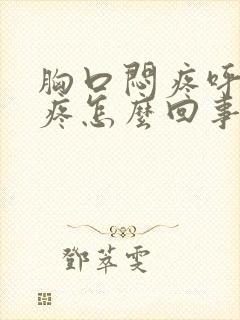 胸口悶疼呼
疼怎麼回事
鄧萃雯